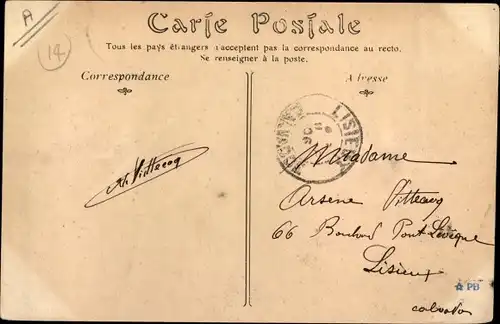 A
14
Carte Postale
Tous les pays étrangers n'acceptent pas la correspondance au recto.
Ne renseigner à la poste.
Correspondance
Adresse
LISIEUX
CALVADOS
06
Vittecoq
Madame
Arsène Vittecoq
66 Boulevard Pont Lévèque
Lisieux
PB
calvados